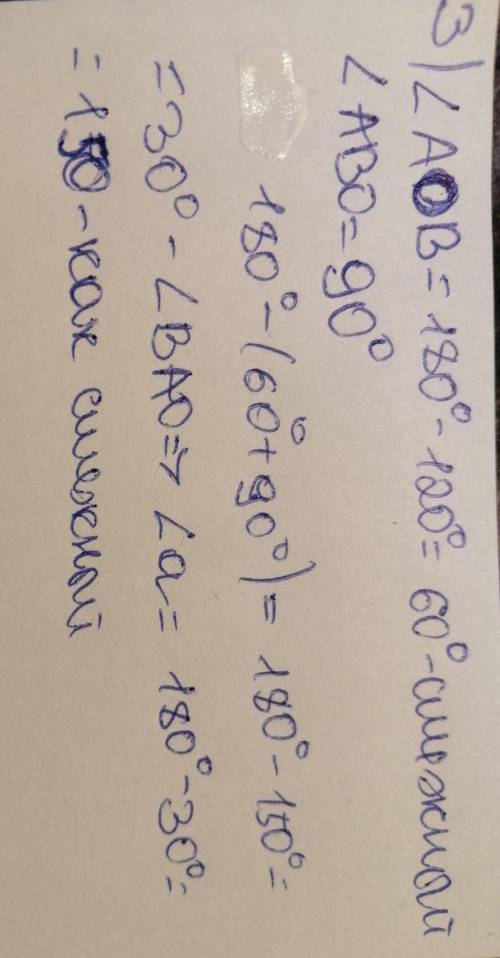 3) ∠AOB = 180° - 120° = 60° - смежный
∠ABO = 90°
180° - (60° + 90°) = 180° - 150° =
= 30° - ∠BAO => ∠a = 180° - 30° =
= 150 - как смежный